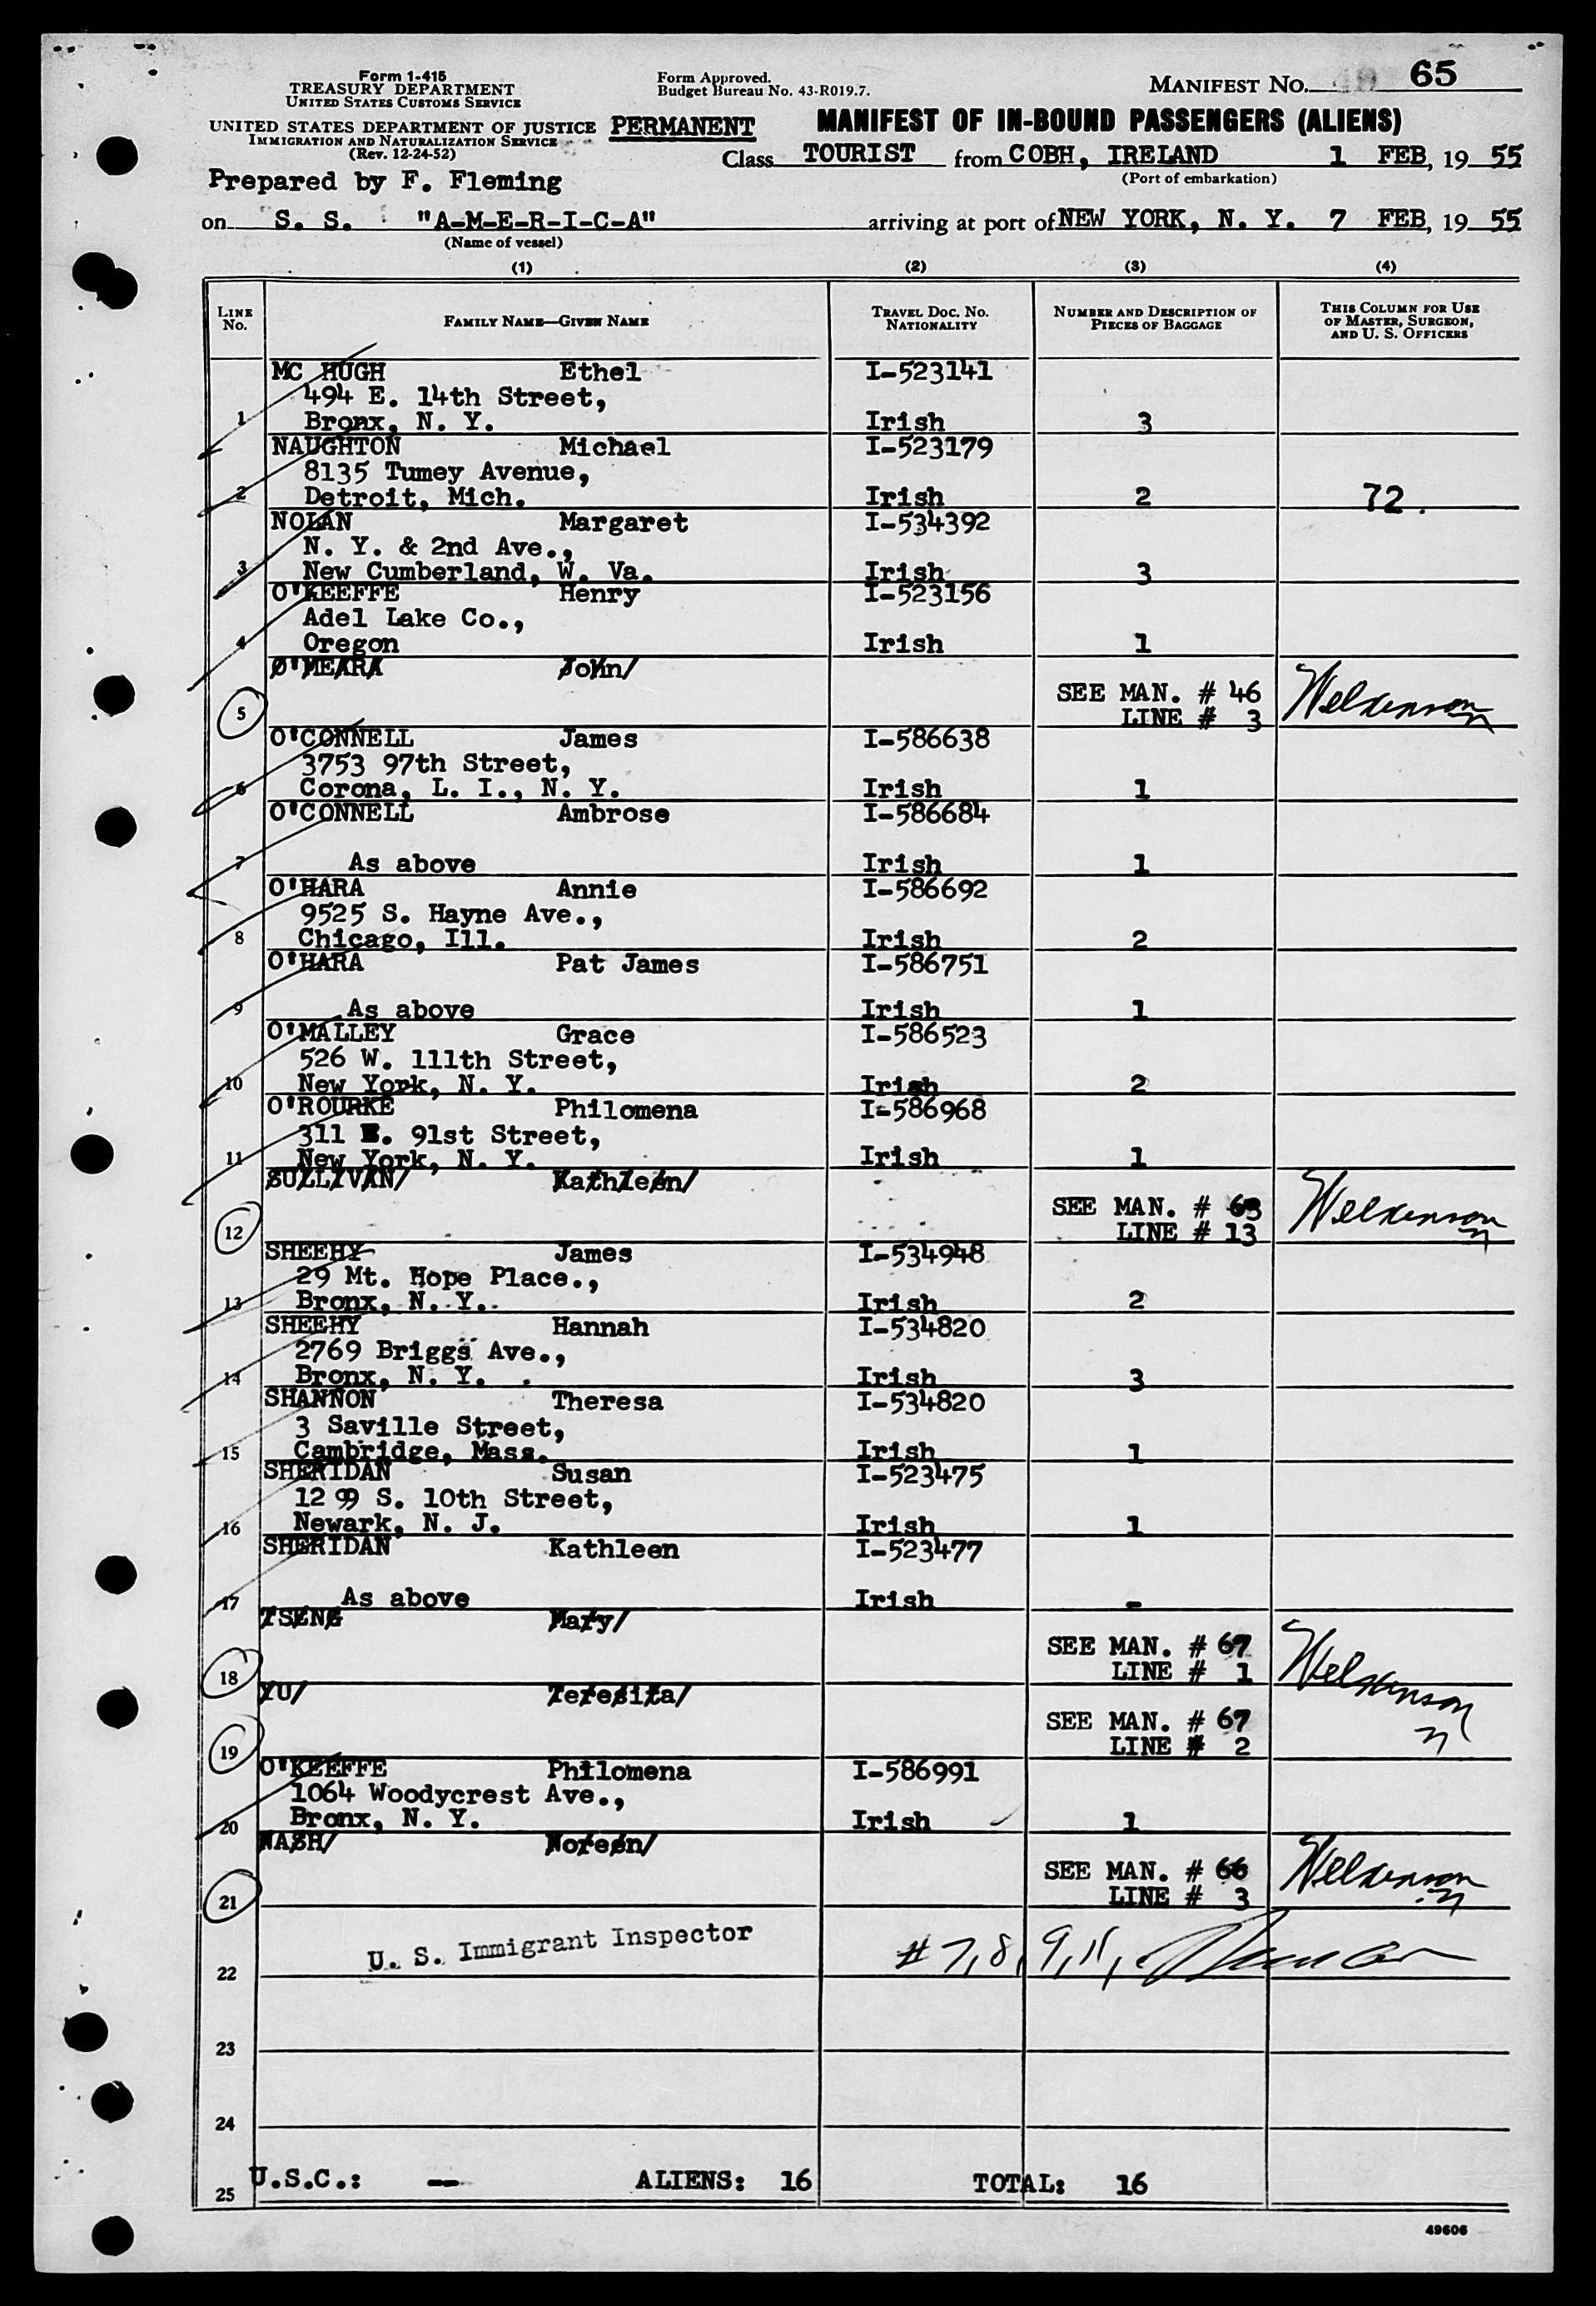 Form 1-415
TREASURY DEPARTMENT
UNITED STATES CUSTOMS SERVICE
UNITED STATES DEPARTMENT OF JUSTICE
IMMIGRATION AND NATURALIZATION SERVICE
(Rev. 12-24-52)
Form Approved.
Budget Bureau No. 43-R019.7.
MANIFEST No. 65
PERMANENT MANIFEST OF IN-BOUND PASSENGERS (ALIENS)
Class TOURIST from COBH, IRELAND 1 FEB, 19 55
(Port of embarkation)
Prepared by F. Fleming
on S. S. "A-M-E-R-I-C-A" arriving at port of NEW YORK, N. Y. 7 FEB, 19 55
(Name of vessel)
(1) (2) (3) (4)
LINE No. FAMILY NAME—GIVEN NAME TRAVEL DOC. No. NATIONALITY NUMBER AND DESCRIPTION OF PIECES OF BAGGAGE THIS COLUMN FOR USE OF MASTER, SURGEON, AND U. S. OFFICERS
MC HUGH Ethel I-523141
494 E. 14th Street,
1 Bronx, N. Y. Irish 3
NAUGHTON Michael I-523179
8135 Tumey Avenue,
2 Detroit, Mich. Irish 2 72.
NOLAN Margaret I-534392
N. Y. & 2nd Ave.,
3 New Cumberland, W. Va. Irish 3
O'KEEFFE Henry I-523156
Adel Lake Co.,
4 Oregon Irish 1
O'MEARA John/
SEE MAN. # 46
5 LINE # 3
O'CONNELL James I-586638
3753 97th Street,
6 Corona, L. I., N. Y. Irish 1
O'CONNELL Ambrose I-586684
7 As above Irish 1
O'HARA Annie I-586692
9525 S. Hayne Ave.,
8 Chicago, Ill. Irish 2
O'HARA Pat James I-586751
9 As above Irish 1
O'MALLEY Grace I-586523
526 W. 111th Street,
10 New York, N. Y. Irish 2
O'ROURKE Philomena I-586968
311 E. 91st Street,
11 New York, N. Y. Irish 1
SULLIVAN/ Kathleen/
SEE MAN. # 63
12 LINE # 13
SHEEHY James I-534948
29 Mt. Hope Place.,
13 Bronx, N. Y. Irish 2
SHEEHY Hannah I-534820
2769 Briggs Ave.,
14 Bronx, N. Y. Irish 3
SHANNON Theresa I-534820
3 Saville Street,
15 Cambridge, Mass. Irish 1
SHERIDAN Susan I-523475
12 99 S. 10th Street,
16 Newark, N. J. Irish 1
SHERIDAN Kathleen I-523477
17 As above Irish -
TSENG Mary/
SEE MAN. # 67
18 LINE # 1
YU/ Teresita/
SEE MAN. # 67
19 LINE # 2
O'KEEFFE Philomena I-586991
1064 Woodycrest Ave.,
20 Bronx, N. Y. Irish 1
NASH/ Noreen/
SEE MAN. # 66
21 LINE # 3
U. S. Immigrant Inspector # 7, 8, 9, 11,
22
23
24
U.S.C.: -- ALIENS: 16 TOTAL: 16
25
49606